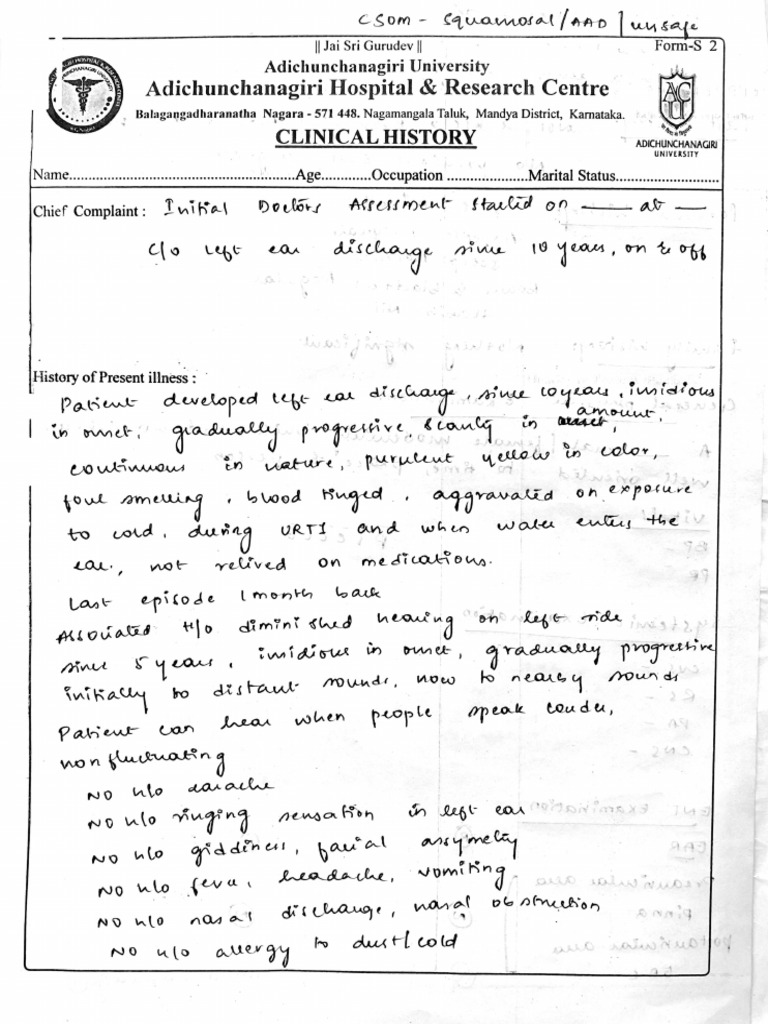 CSOM - Squamosal/AAD / unsafe
|| Jai Sri Gurudev ||
Form-S 2
Adichunchanagiri University
Adichunchanagiri Hospital & Research Centre
Balagangadharanatha Nagara - 571 448. Nagamangala Taluk, Mandya District, Karnataka.
ADICHUNCHANAGIRI
UNIVERSITY
CLINICAL HISTORY
Name..............................................Age............Occupation ...................Marital Status........................
Chief Complaint : Initial Doctors Assessment started on —— at —
C/o left ear discharge since 10 years, on & off
History of Present illness :
Patient developed left ear discharge, since 10 years, insidious
in onset, gradually progressive, scanty in amount,
continuous in nature, purulent yellow in color,
foul smelling, blood tinged, aggravated on exposure
to cold, during URTI and when water enters the
ear, not relived on medications.
Last episode 1 month back
Associated H/o diminished hearing on left side
since 5 years, insidious in onset, gradually progressive
initially to distant sounds, now to nearby sounds
Patient can hear when people speak louder,
non fluctuating
No H/o earache
No H/o ringing sensation in left ear
No H/o giddiness, facial assymetry
No H/o fever, headache, vomiting
No H/o nasal discharge, nasal obstruction
No H/o allergy to dust/cold